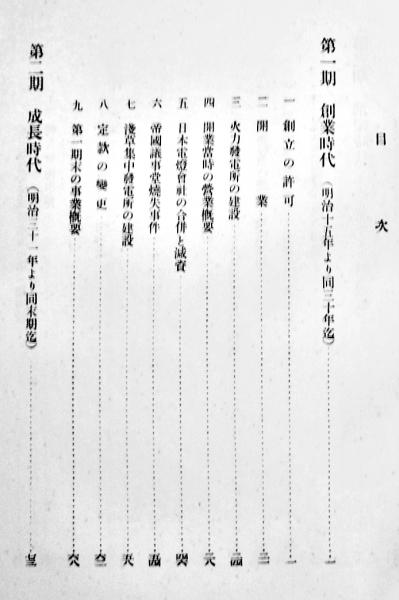 目次
第一期 創業時代（明治十五年より同三十年迄） 一
一 創立の許可 一
二 開業
三 火力發電所の建設
四 開業當時の營業概要
五 日本電燈會社の合併と減資
六 帝國議事堂燒失事件
七 淺草集中發電所の建設
八 定款の變更
九 第一期末の事業概要
第二期 成長時代（明治三十一年より同末期迄）